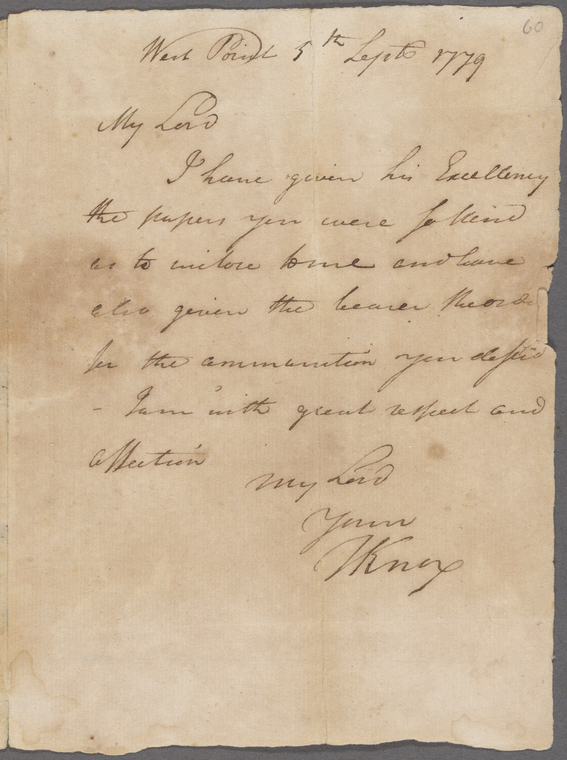 60
West Point 5th Septr 1779
My Lord
I have given his Excellency
the papers you were so kind
as to inclose to me and have
also given the bearer the order
for the ammunition you desird
- I am with great respect and
affection
My Lord
Yours
HKnox